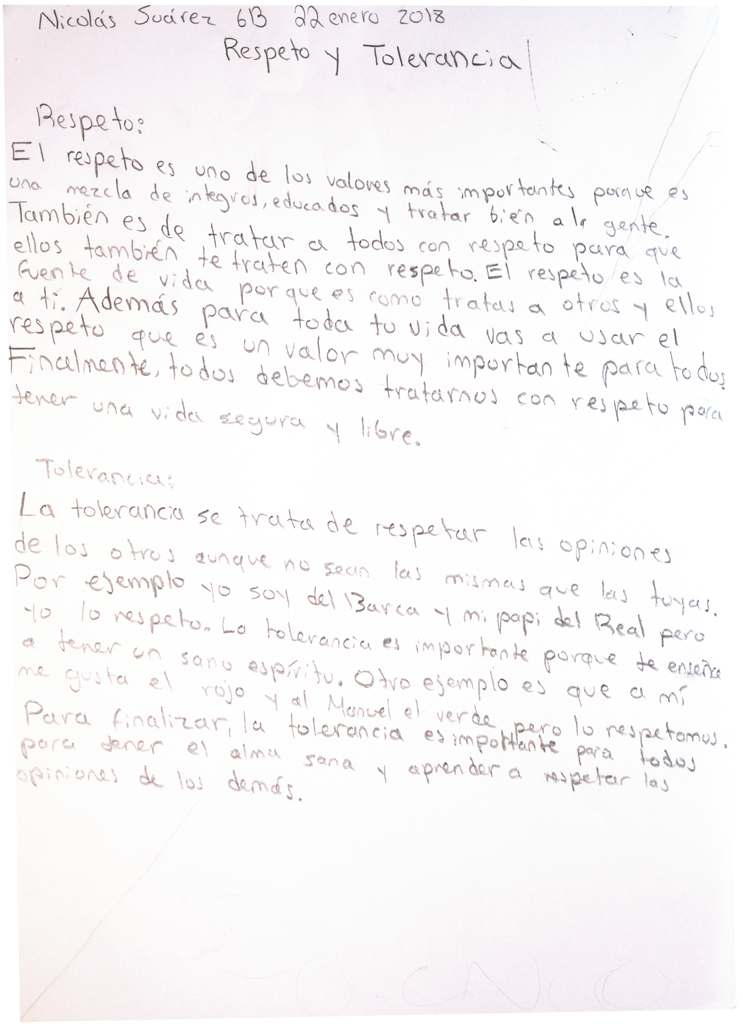 Nicolás Suárez 6B 22 enero 2018
Respeto y Tolerancia
Respeto:
El respeto es uno de los valores más importantes porque es
una mezcla de integros, educados y tratar bien a la gente.
También es de tratar a todos con respeto para que
ellos también te traten con respeto. El respeto es la
fuente de vida porque es como tratas a otros y ellos
a ti. Además para toda tu vida vas a usar el
respeto que es un valor muy importante para todos
Finalmente, todos debemos tratarnos con respeto para
tener una vida segura y libre.
Tolerancia:
La tolerancia se trata de respetar las opiniones
de los otros aunque no sean las mismas que las tuyas.
Por ejemplo yo soy del Barca y mi papi del Real pero
yo lo respeto. La tolerancia es importante porque te enseña
a tener un sano espíritu. Otro ejemplo es que a mí
me gusta el rojo y al Manuel el verde pero lo respetamos.
Para finalizar, la tolerancia es importante para todos
para tener el alma sana y aprender a respetar las
opiniones de los demás.